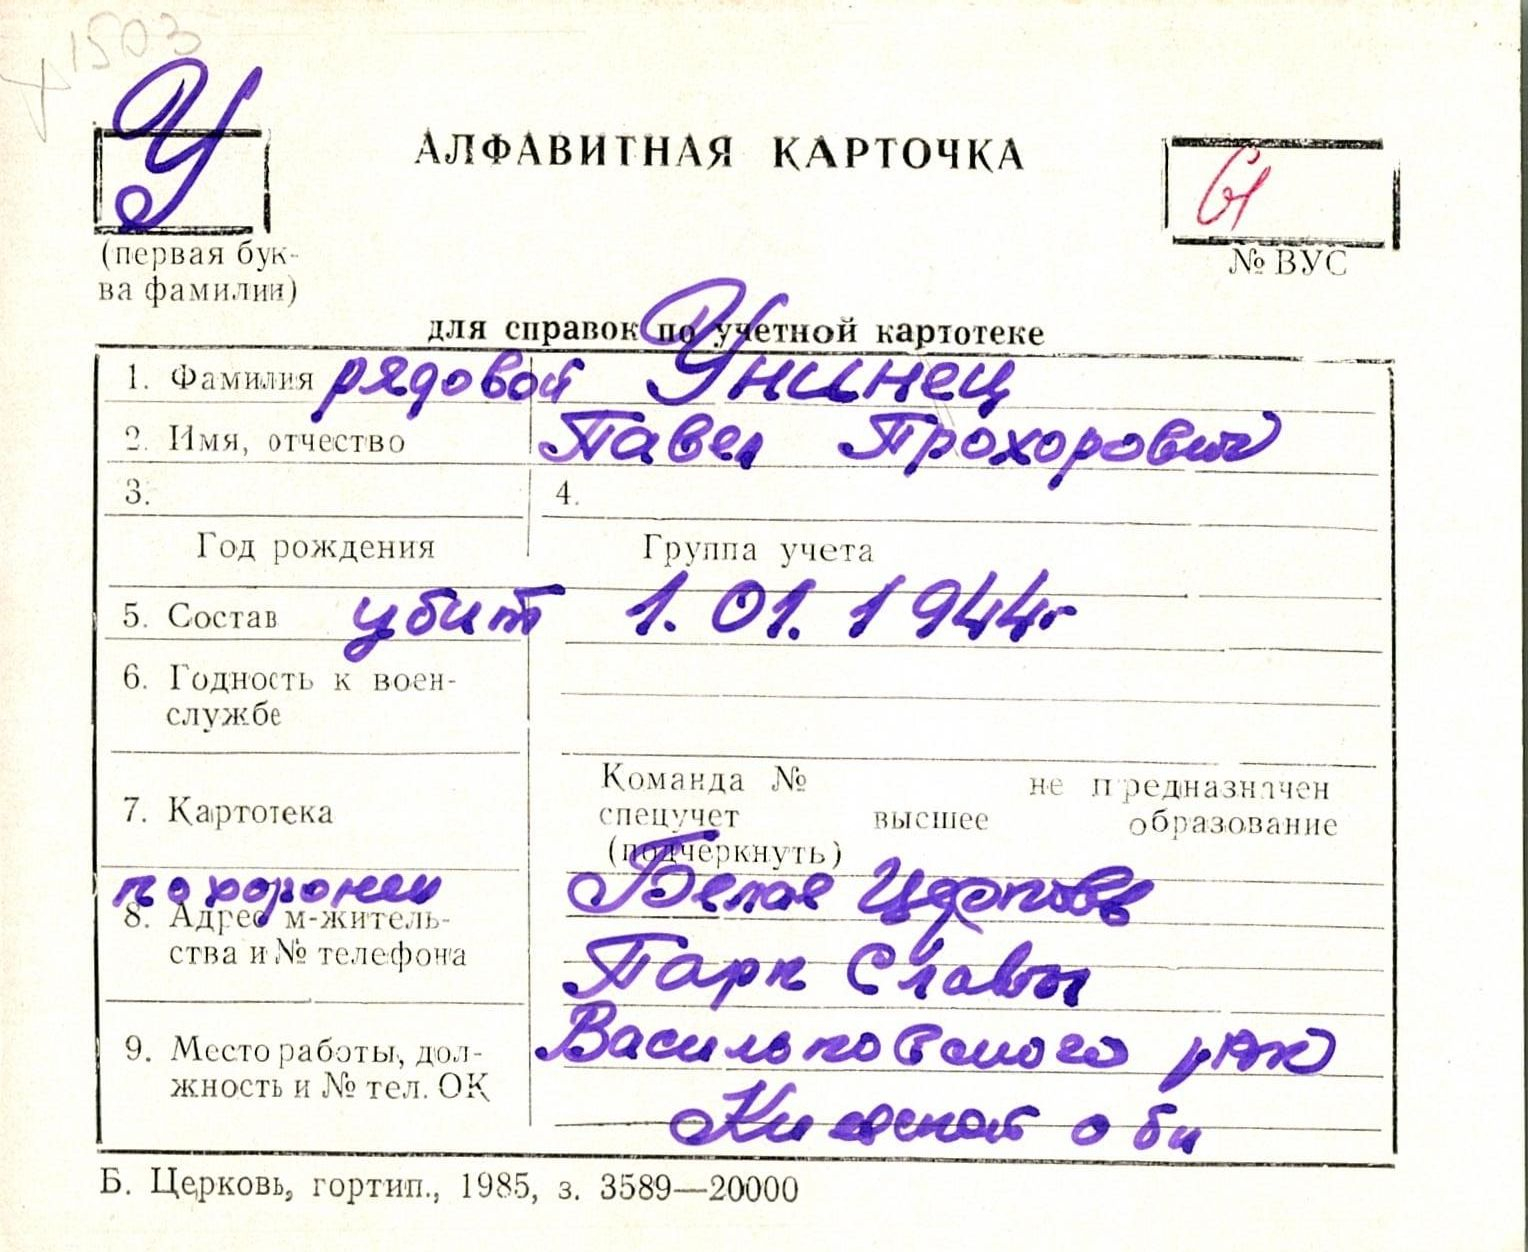 1503
У
АЛФАВИТНАЯ КАРТОЧКА
61
(первая бук-
ва фамилии)
№ ВУС
для справок по учетной картотеке
1. Фамилия рядовой Унинец
2. Имя, отчество Павел Прохорович
3. 4.
Год рождения Группа учета
5. Состав убит 1.01.1944г
6. Годность к воен-
службе
Команда № не предназначен
7. Картотека спецучет высшее образование
(подчеркнуть)
похоронен Белая Церковь
8. Адрес м-житель-
ства и № телефона Парк Славы
9. Место работы, дол- Васильковского р-на
жность и № тел. ОК
Киевской обл
Б. Церковь, гортип., 1985, з. 3589—20000